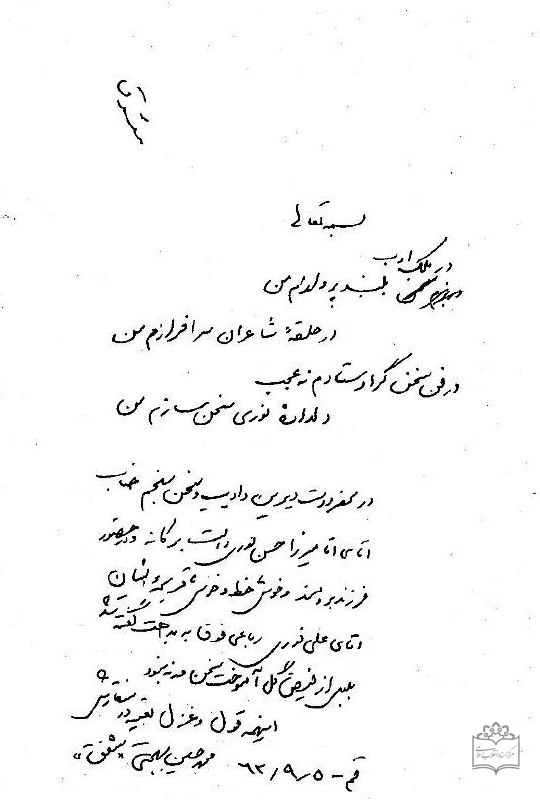 بسمه تعالی
در ملک ادب
بلند پروازم من
در حلقهٔ شاعران سرافرازم من
در فن سخن گر اوستادم نه عجب
دلدادهٔ نوری سخن سازم من
در محضر دوست دیرین و ادیب و سخن سنجم جناب
آقای آقا میرزا حسن نوری دامت برکاته و در حضور
فرزند برومند و خوش خط و خوش قریحهٔ ایشان
آقای علی نوری رباعی فوق به بداهت گفته شد
بلبل از فیض گل آموخت سخن ورنه نبود
اینهمه قول و غزل تعبیه در منقارش
قم - ۶۳/۹/۵ محمد حسین بهجتی «شفق»